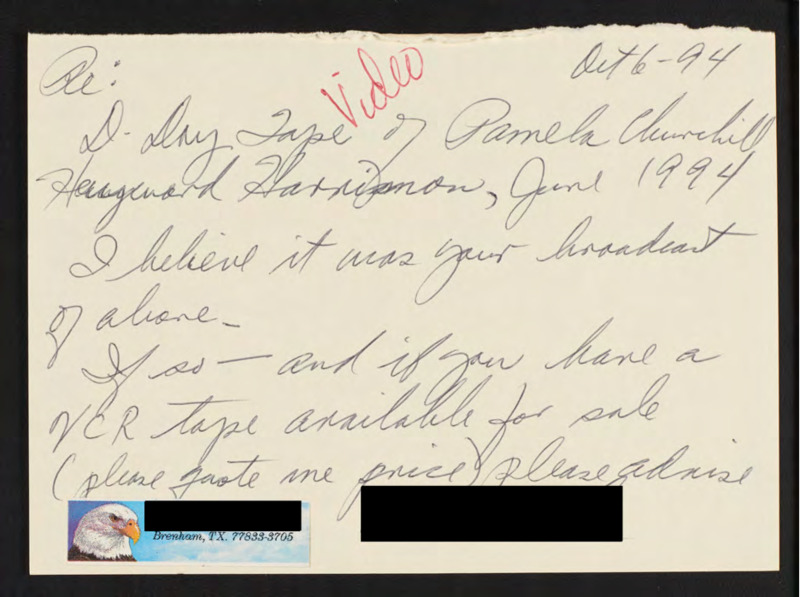 Oct 6-94
Re:
Video
D-Day Tape of Pamela Churchill
Haygward Harrimon, June 1994
I believe it was your broadcast
of above-
If so - and if you have a
VCR tape available for sale
(please quote me price) please advise
Brenham, TX. 77833-3705